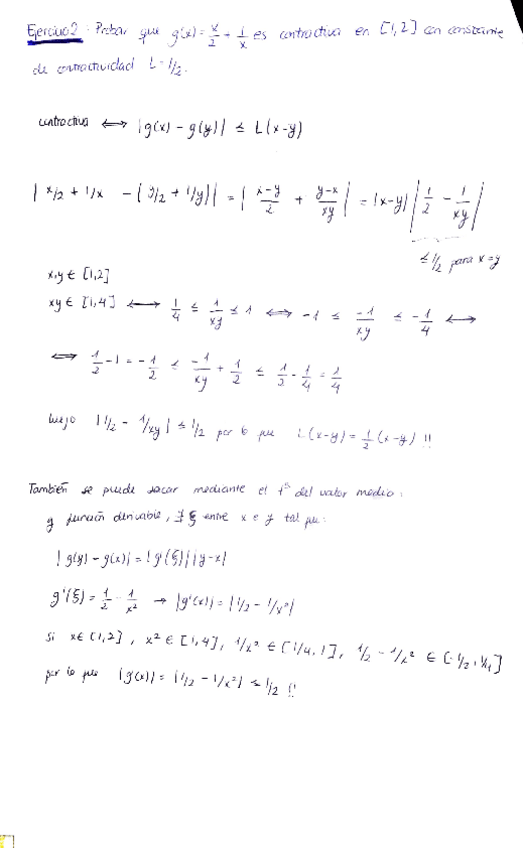 Ejercicio 2: Probar que g(x) = x/2 + 1/x es contractiva en [1,2] con constante
de contractividad L = 1/2.
contractiva ⟺ |g(x) - g(y)| ≤ L(x-y)
| x/2 + 1/x - (y/2 + 1/y)| = | (x-y)/2 + (y-x)/xy | = |x-y| | 1/2 - 1/xy |
≤ 1/2 para x=y
x,y ∈ [1,2]
xy ∈ [1,4] ⟺ 1/4 ≤ 1/xy ≤ 1 ⟺ -1 ≤ -1/xy ≤ -1/4 ⟺
⟺ 1/2 - 1 = -1/2 ≤ -1/xy + 1/2 ≤ 1/2 - 1/4 = 1/4
luego |1/2 - 1/xy| ≤ 1/2 por lo que L(x-y) = 1/2 (x-y) !!
También se puede sacar mediante el tª del valor medio:
g función derivable, ∃ ξ entre x e y tal que:
|g(y) - g(x)| = |g'(ξ)| |y-x|
g'(ξ) = 1/2 - 1/x² → |g'(x)| = |1/2 - 1/x²|
Si x ∈ [1,2], x² ∈ [1,4], 1/x² ∈ [1/4, 1], 1/2 - 1/x² ∈ [-1/2, 1/4]
por lo que |g(x)| = |1/2 - 1/x²| ≤ 1/2 !!